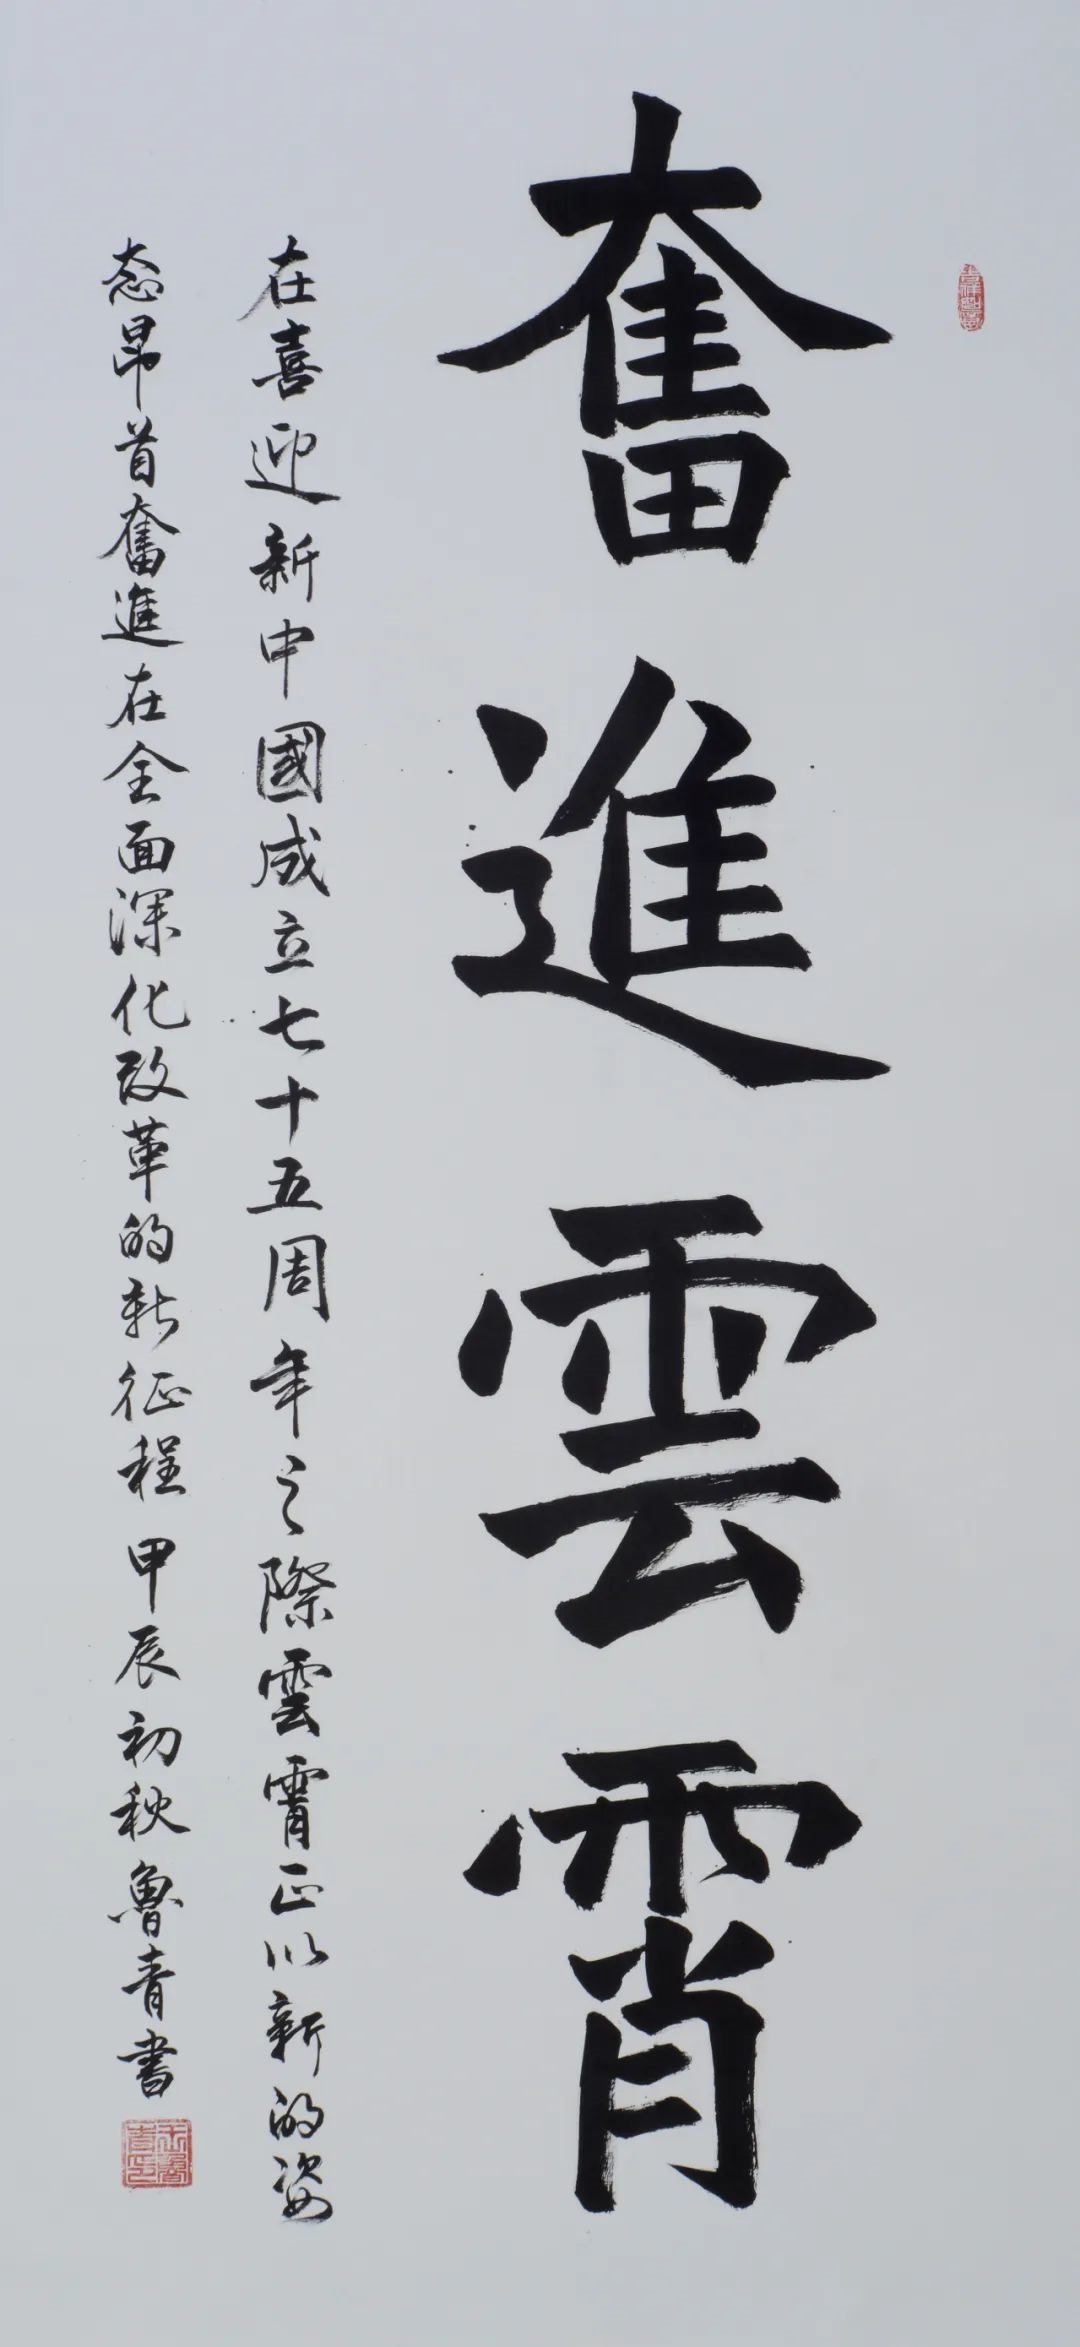 奮進雲霄
在喜迎新中國成立七十五周年之際雲霄正以新的姿
态昂首奮進在全面深化改革的新征程甲辰初秋魯青書